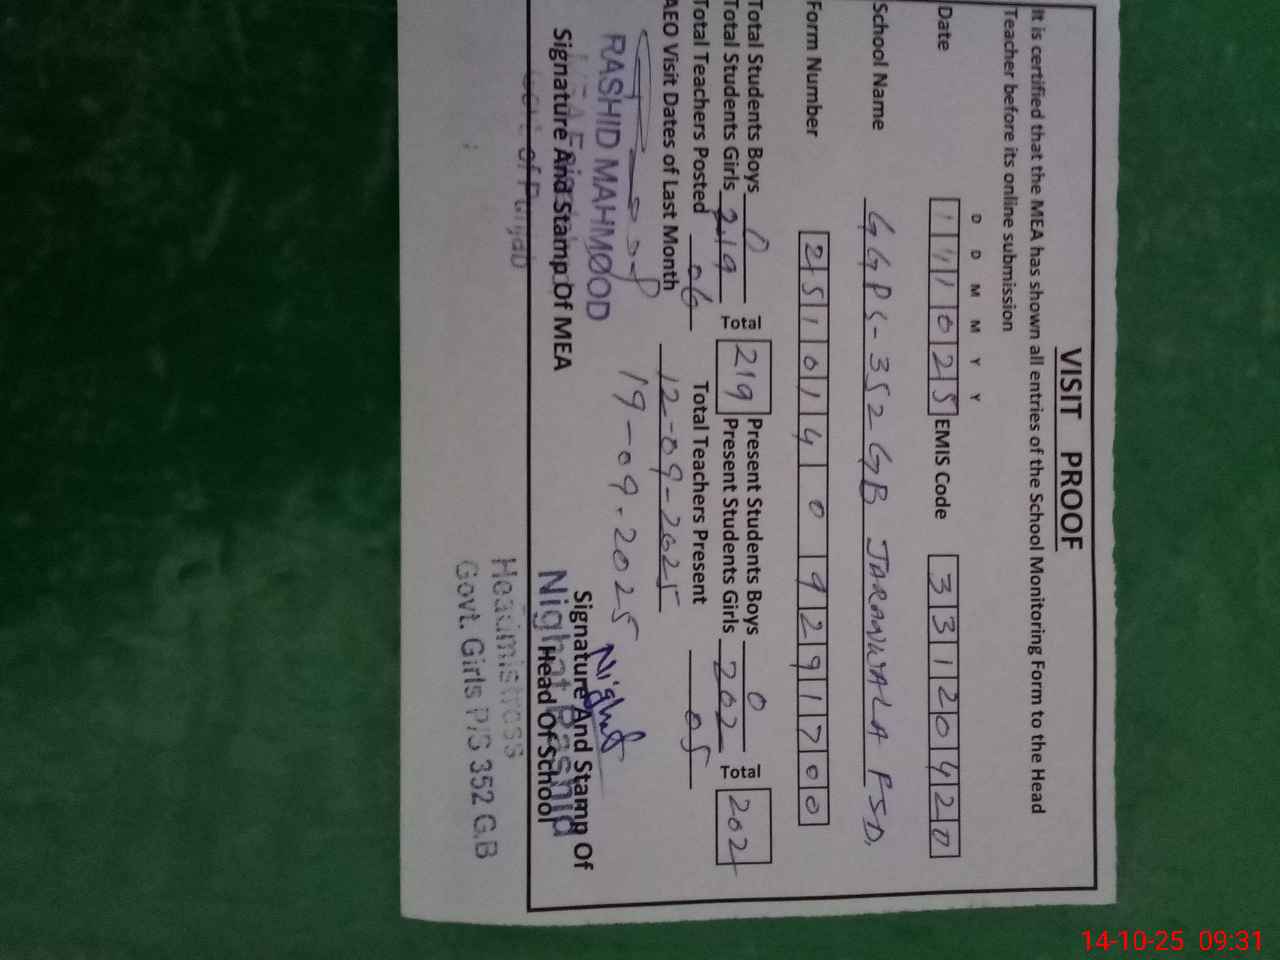 VISIT PROOF
It is certified that the MEA has shown all entries of the School Monitoring Form to the Head
Teacher before its online submission
D D M M Y Y
Date 1 1 1 0 2 5 EMIS Code 3 3 1 2 0 4 2 0
School Name GGPS-352 GB JARANWALA FSD.
Form Number 2 5 1 0 1 4 0 9 2 9 1 7 0 0
Total Students Boys 0 Total 219 Present Students Boys 0 Total 202
Total Students Girls 219 Present Students Girls 202
Total Teachers Posted 06 Total Teachers Present 05
AEO Visit Dates of Last Month 12-09-2025
19-09-2025
Nighat
RASHID MAHMOOD
Signature And Stamp Of MEA
Signature And Stamp Of
Head Of School
Nighat Rashid
of Punjab
Headmistress
Govt. Girls P/S 352 G.B
14-10-25 09:31